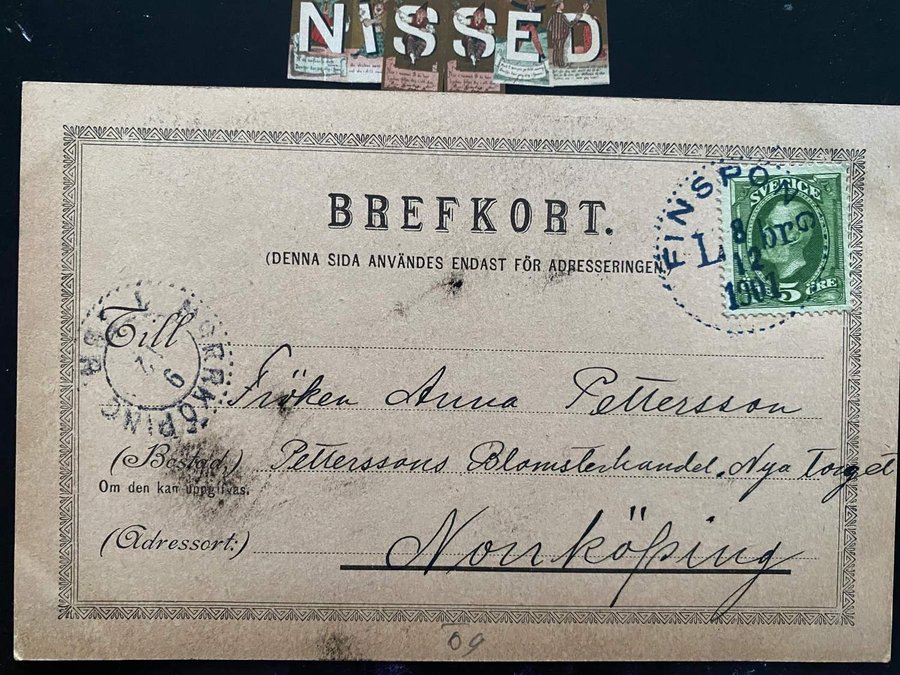 NISSED
BREFKORT.
(DENNA SIDA ANVÄNDES ENDAST FÖR ADRESSERINGEN)
FINSPONG
L Lbr
8
12
1901
SVERIGE
5 ÖRE
Till
NORRKÖPING
Fröken Anna Pettersson
(Bostad,) Petterssons Blomsterhandel. Nya torget
Om den kan uppgifvas.
(Adressort:) Norrköping
09